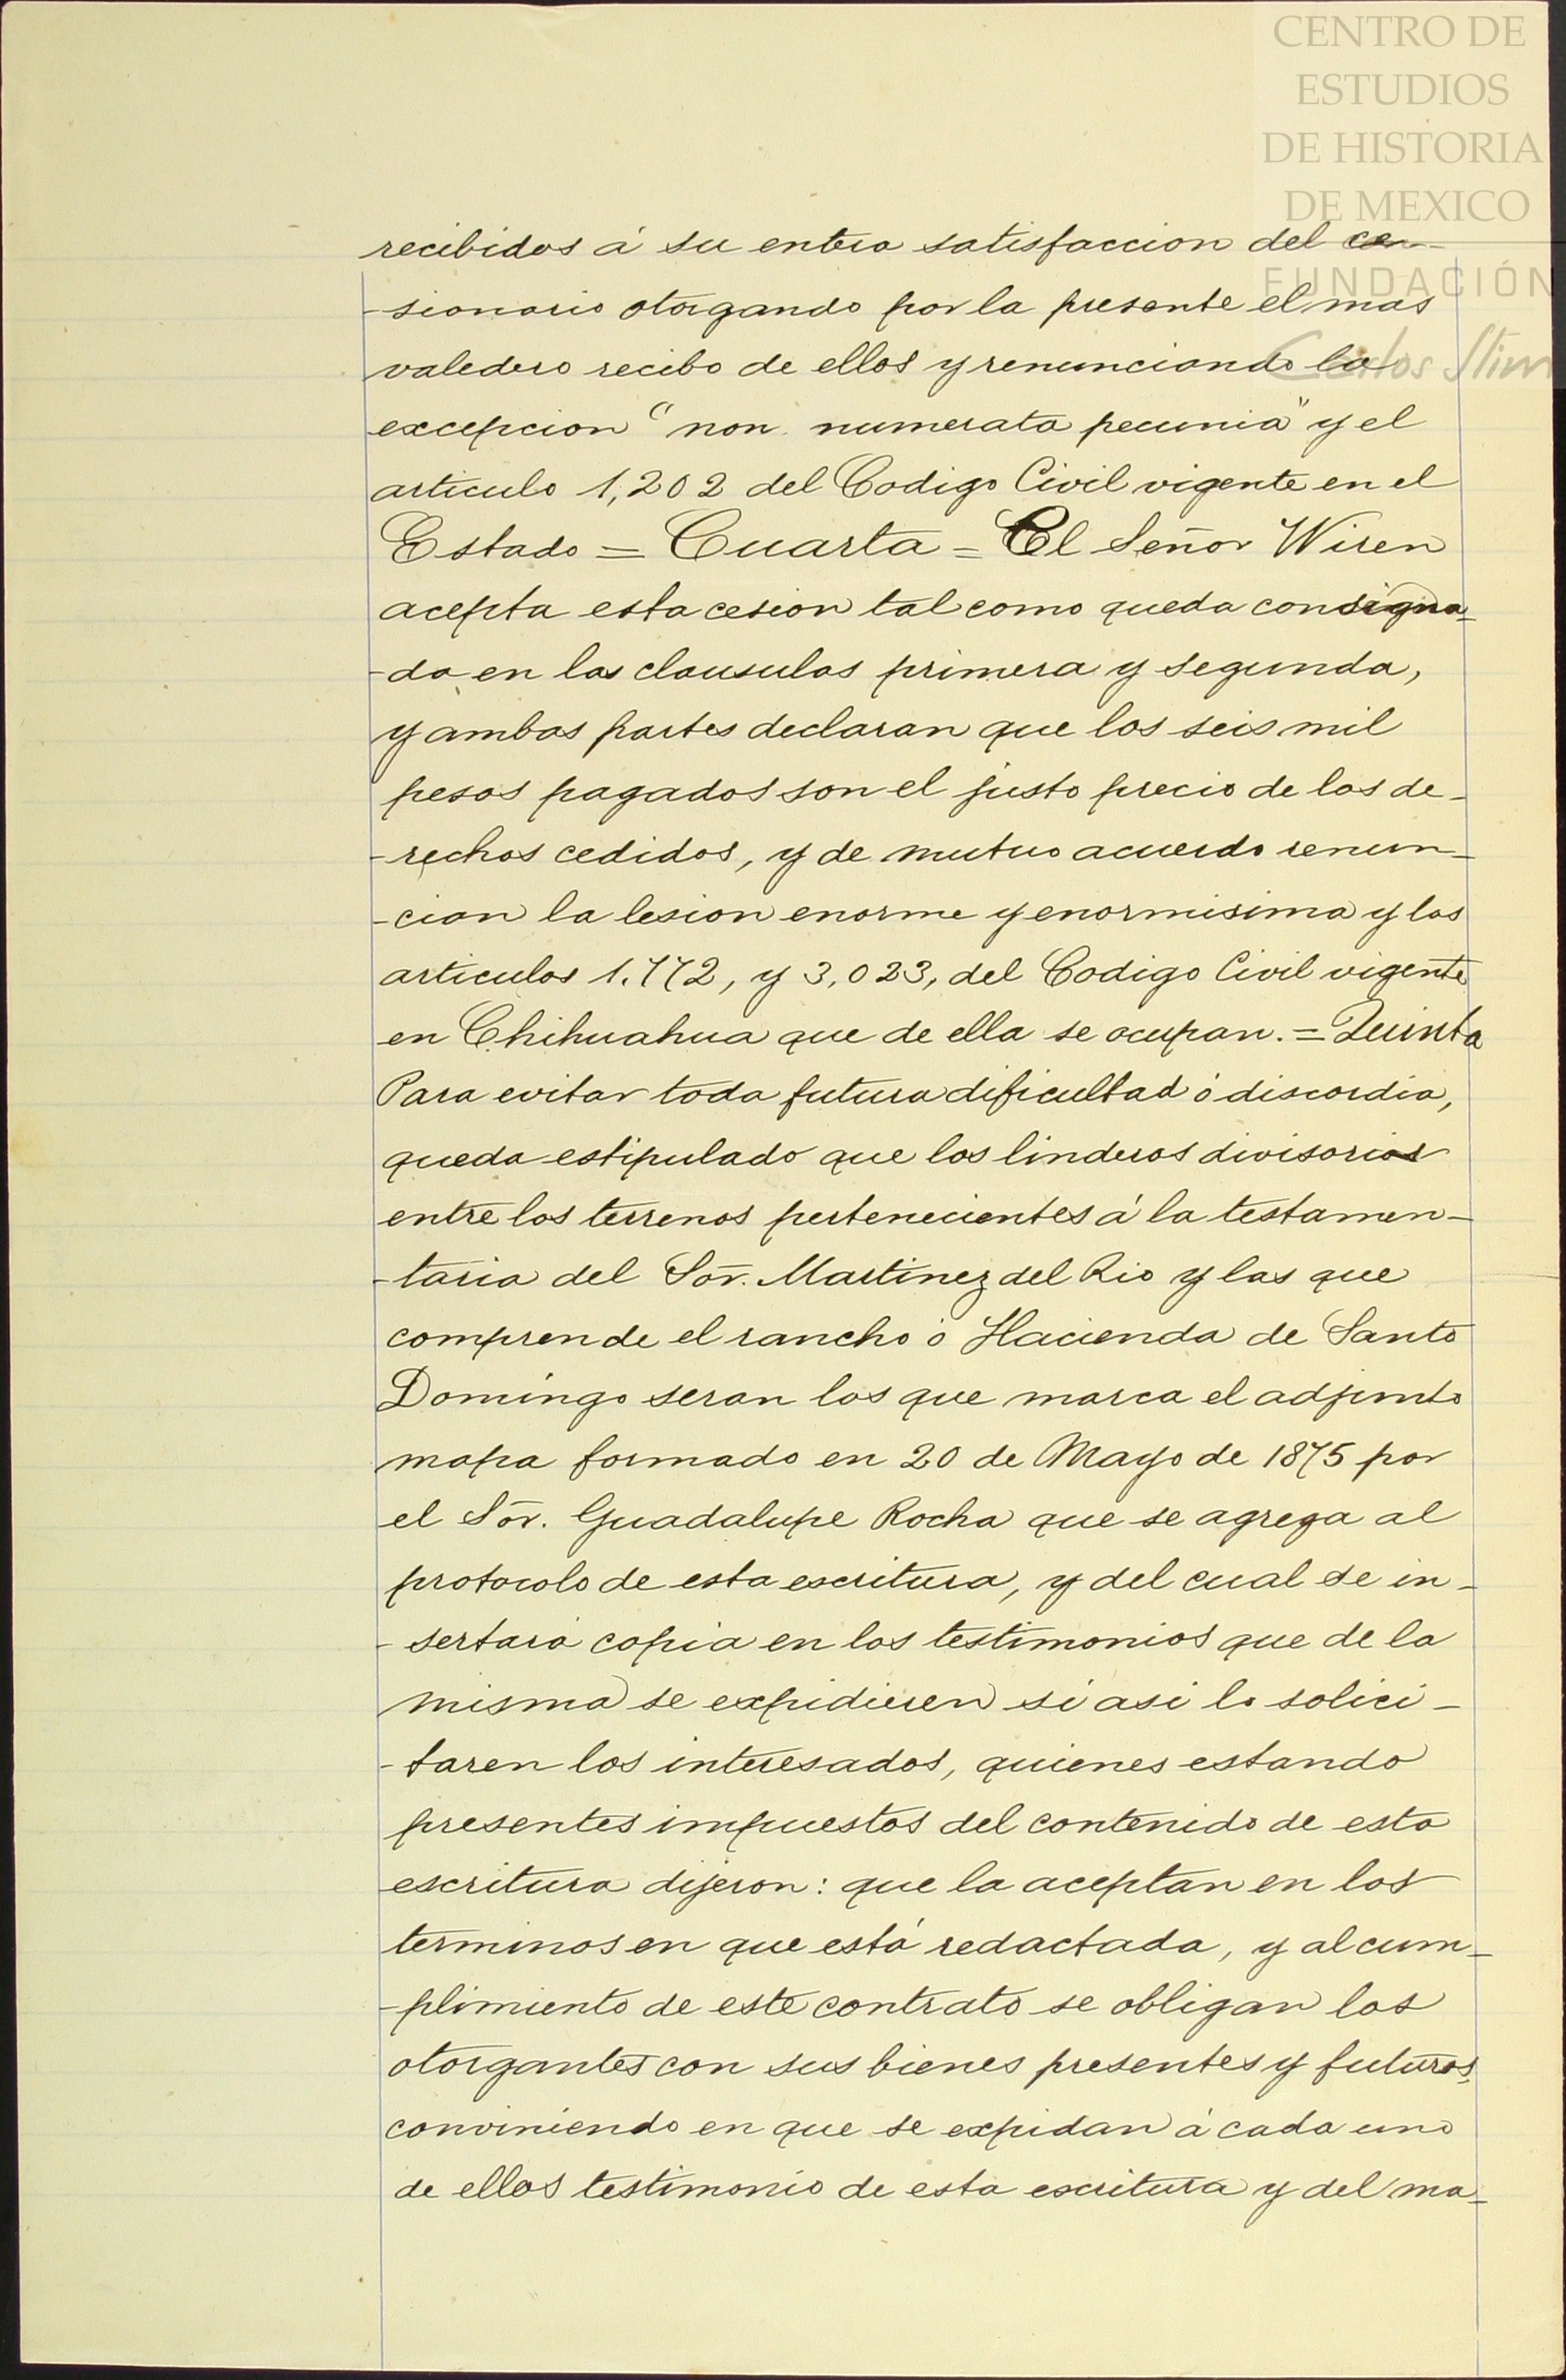 CENTRO DE
ESTUDIOS
DE HISTORIA
DE MEXICO
FUNDACIÓN
Carlos Slim
recibidos á su entera satisfaccion del ce-
-sionario otorgando por la presente el mas
valedero recibo de ellos y renunciando la
excepcion "non numerata pecunia" y el
articulo 1,202 del Codigo Civil vigente en el
Estado = Cuarta = El Señor Wiren
acepta esta cesion tal como queda consigna-
-da en las clausulas primera y segunda,
y ambas partes declaran que los seis mil
pesos pagados son el justo precio de los de-
-rechos cedidos, y de mutuo acuerdo renun-
-cian la lesion enorme y enormisima y los
articulos 1.772, y 3,023, del Codigo Civil vigente
en Chihuahua que de ella se ocupan. = Quinta
Para evitar toda futura dificultad ó discordia,
queda estipulado que los linderos divisorios
entre los terrenos pertenecientes á la testamen-
-taria del Sor. Martinez del Rio y las que
comprende el rancho ó Hacienda de Santo
Domingo seran los que marca el adjunto
mapa formado en 20 de Mayo de 1875 por
el Sor. Guadalupe Rocha que se agrega al
protocolo de esta escritura, y del cual se in-
-sertará copia en los testimonios que de la
misma se expidieren si asi lo solici-
-taren los interesados, quienes estando
presentes impuestos del contenido de esta
escritura dijeron: que la aceptan en los
terminos en que está redactada, y al cum-
-plimiento de este contrato se obligan los
otorgantes con sus bienes presentes y futuros,
conviniendo en que se expidan á cada uno
de ellos testimonio de esta escritura y del ma-